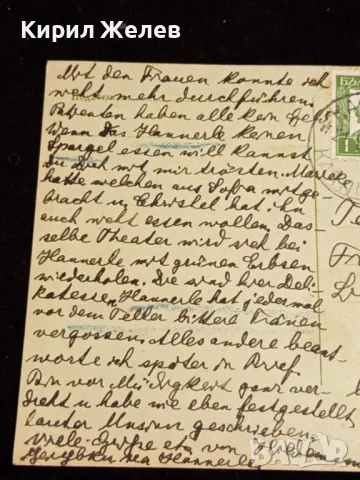 Кирил Желев
Mit den Frauen konnte ich
nicht mehr durchführen
Patienten haben alle kein Geld
Wenn das Hannerle keinen
Spargel essen will kannst
Du Dich mit mir trösten.
hatte welchen aus Sofia mitge-
bracht u. Christel hat ihn
auch nicht essen wollen. Das-
selbe Theater wird sich bei
Hannerle mit grünen Erbsen
wiederholen. Die sind hier Deli-
katessen. Hannerle hat jedesmal
vor dem Teller bittere Tränen
vergossen. Alles andere beant-
worte ich später im Brief
Bin vor Müdigkeit ganz ver-
dreht u. habe wie eben festgestellt
lauter Unsinn geschrieben
Viele Grüße etc. von
на Hannerle
bazar.bg